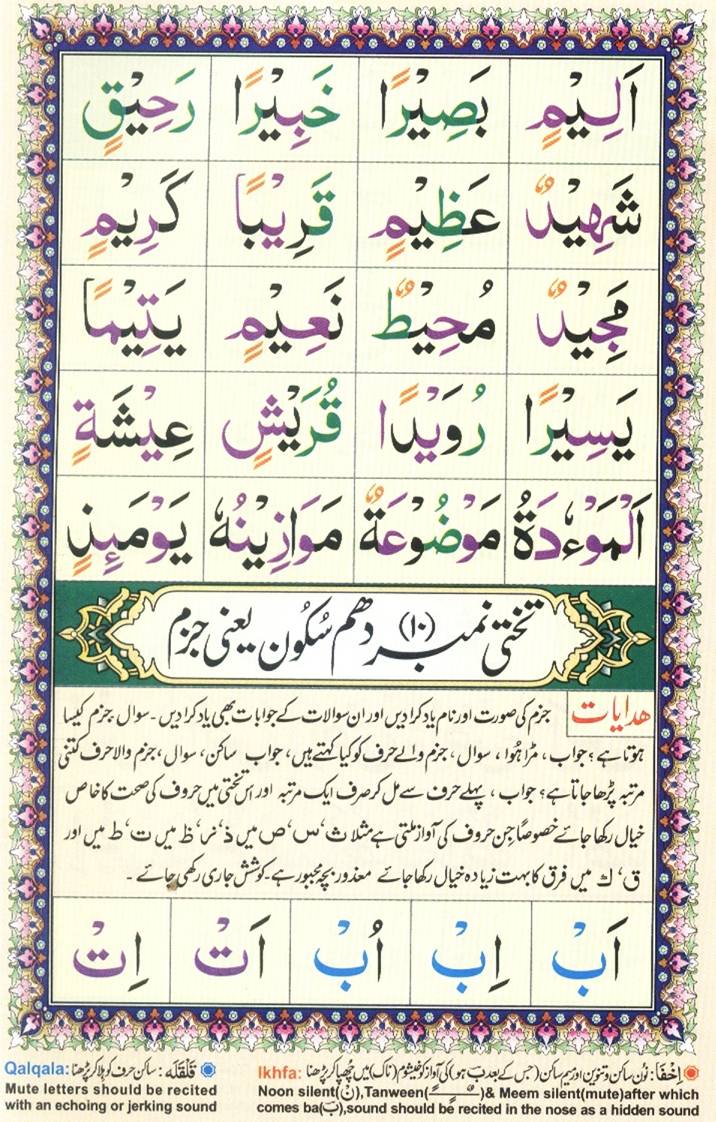 اَلِيْمٍ بَصِيْرًا خَبِيْرًا رَحِيْقٍ
شَهِيْدٌ عَظِيْمٍ قَرِيْبًا كَرِيْمٍ
مَجِيْدٌ مُحِيْطٌ نَعِيْمٍ يَتِيْمًا
يَسِيْرًا رُوَيْدًا قُرَيْشٍ عِيْشَةٍ
اَلْمَوْءٗدَةُ مَوْضُوْعَةٌ مَوَازِيْنُهٗ يَوْمَئِذٍ
تختی نمبر (۱۰) دھم سُکُون یعنی جزم
ھدایات جزم کی صورت اور نام یاد کرا دیں اور ان سوالات کے جوابات بھی یاد کرا دیں۔ سوال، جزم کیسا
ہوتا ہے؟ جواب، مڑا ہُوا، سوال، جزم والے حرف کو کیا کہتے ہیں، جواب ساکن، سوال، جزم والا حرف کتنی
مرتبہ پڑھا جاتا ہے؟ جواب، پہلے حرف سے مل کر صرف ایک مرتبہ اور اس تختی میں حروف کی صحت کا خاص
خیال رکھا جائے خصوصاً جن حروف کی آواز ملتی ہے مثلا ث‘ س‘ ص میں ذ‘ ز‘ ظ میں ت‘ ط میں اور
ق‘ ك میں فرق کا بہت زیادہ خیال رکھا جائے معذور بچہ مجبور ہے۔ کوشش جاری رکھی جائے۔
اَبْ اِبْ اُبْ اَتْ اِتْ
اِخْفَا: نُون ساکن و تنوین اور میم ساکن (جس کے بعد ب ہو) کی آواز کو خیشوم (ناک) میں چُھپا کر پڑھنا Ikhfa:
Noon silent(نْ),Tanween(ــًــٍــٌ)& Meem silent(mute)after which
comes ba(ب),sound should be recited in the nose as a hidden sound
قَلْقَلَه: ساکن حرف کو ہلا کر پڑھنا Qalqala:
Mute letters should be recited
with an echoing or jerking sound